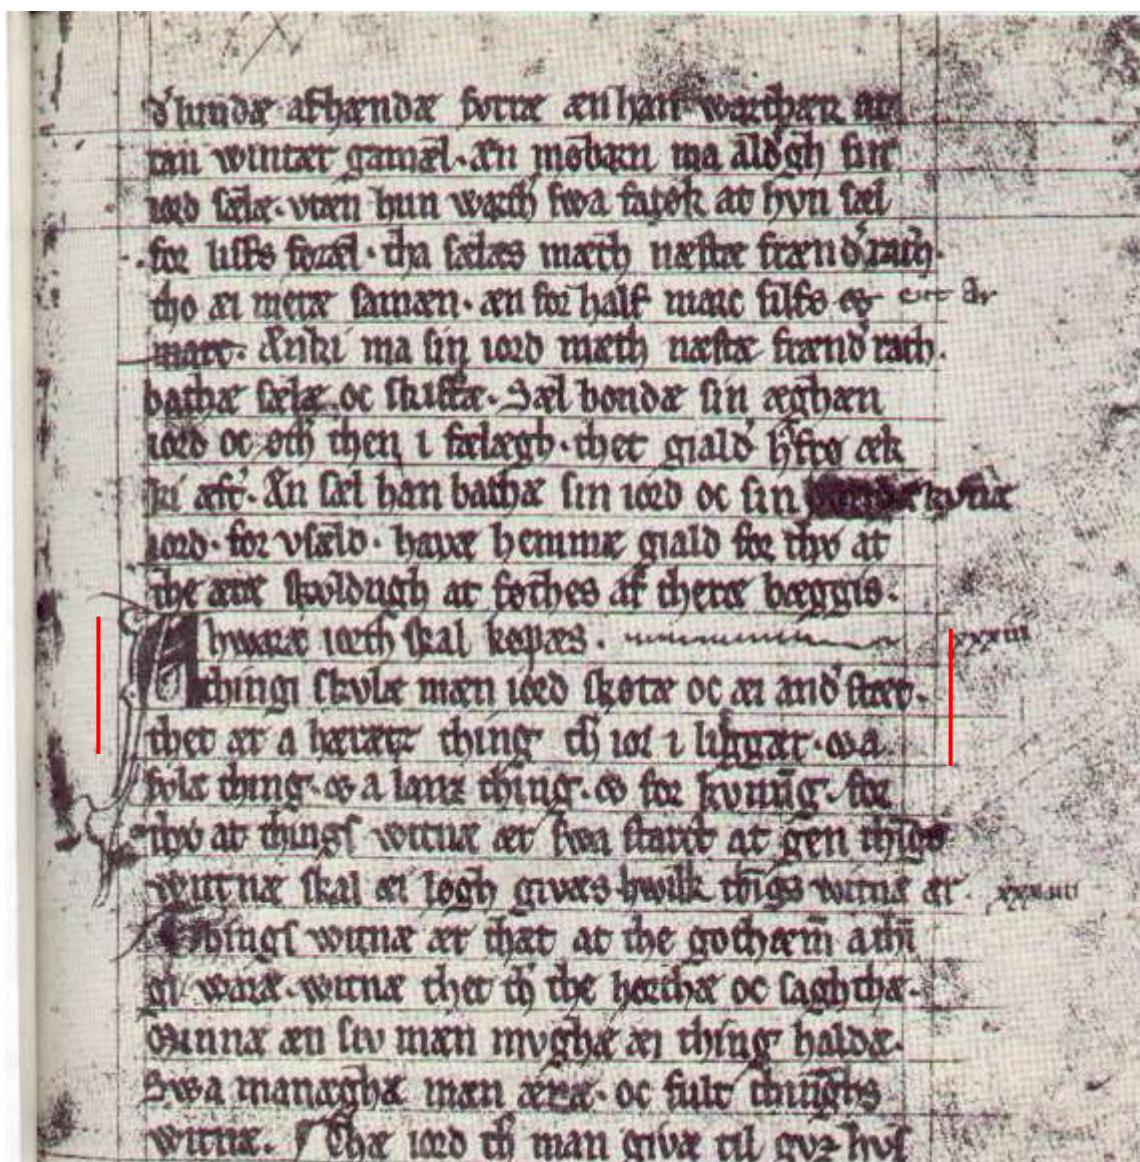 d' lundæ afhændæ førræ æn han warthær at
tan wintær gamæl. Æn møbarn ma aldrigh sin
iord sælæ. vtæn hun warth swa fatøk at hvn sæl
for liffs foræl. tha sælæs mæth næstæ frænd' rath.
tho æi meræ samæn. æn for half marc silfs
marc. Ænki ma sin iord mæth næstæ frænd' rath.
bathæ sælæ oc skiftæ. Sæl bondæ sin æghæn
iord oc oth' then i fælægh. thet giald' æk
ki æft'. Æn sæl han bathæ sin iord oc sin kvnæ
iord. for vsæld. havæ hemmæ giald for thy at
the æræ skyldugh at føthes af theræ bæggis.
hwaræ iorth skal køpæs. xxxiii
A thingi skvlæ mæn iord skøtæ oc æi and' stæt.
thet ær a hæræz thing th' ior i liggær. a
sylæ thing. a lanz thing. for kvnūg. for
thy at things witnæ ær swa starkt at gen things
witnæ skal æi logh givæs. hwilk things witnæ ær. xxxiiii
Things witnæ ær thæt at the gothæ mæn a thin
gi waræ. witnæ thet th' the hørthæ oc saghthæ.
Minnæ æn siv mæn mvghæ æi thing haldæ.
Swa manæghæ mæn æræ. oc fult thinghs
witnæ. Thæ iord th' man givæ til gvz hvs